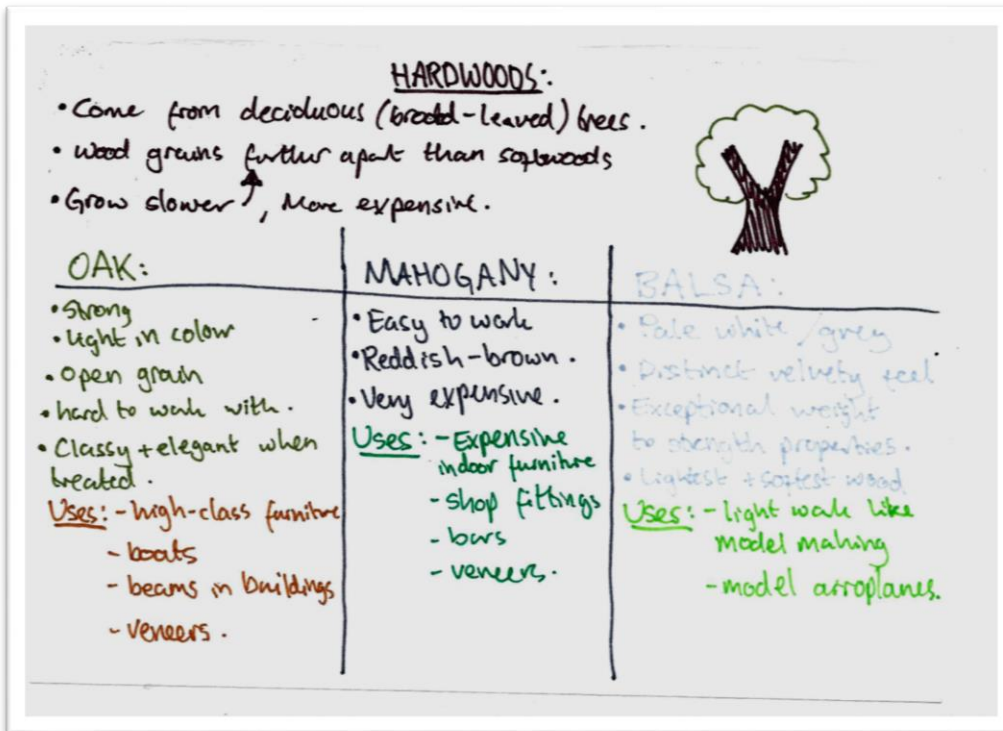 HARDWOODS:
• Come from deciduous (broad-leaved) trees.
• wood grains further apart than softwoods
• Grow slower, More expensive.
OAK:
• Strong
• Light in colour
• Open grain
• hard to work with.
• Classy + elegant when
treated.
Uses: - high-class furniture
- boats
- beams in buildings
- veneers.
MAHOGANY:
• Easy to work
• Reddish-brown.
• Very expensive.
Uses: - Expensive
indoor furniture
- shop fittings
- bars
- veneers.
BALSA:
• Pale white/grey
• Distinct velvety feel
• Exceptional weight
to strength properties.
• Lightest + softest wood
Uses: - light work like
model making
- model arroplanes.